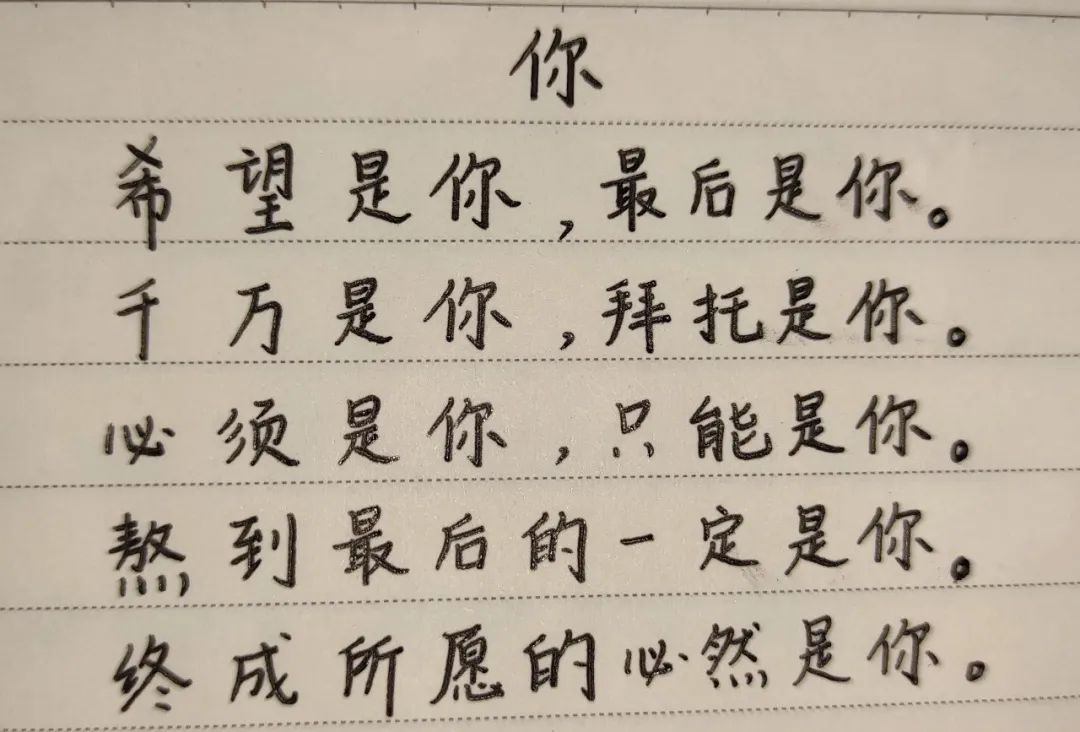 你
希望是你,最后是你。
千万是你,拜托是你。
必须是你,只能是你。
熬到最后的一定是你。
终成所愿的必然是你。